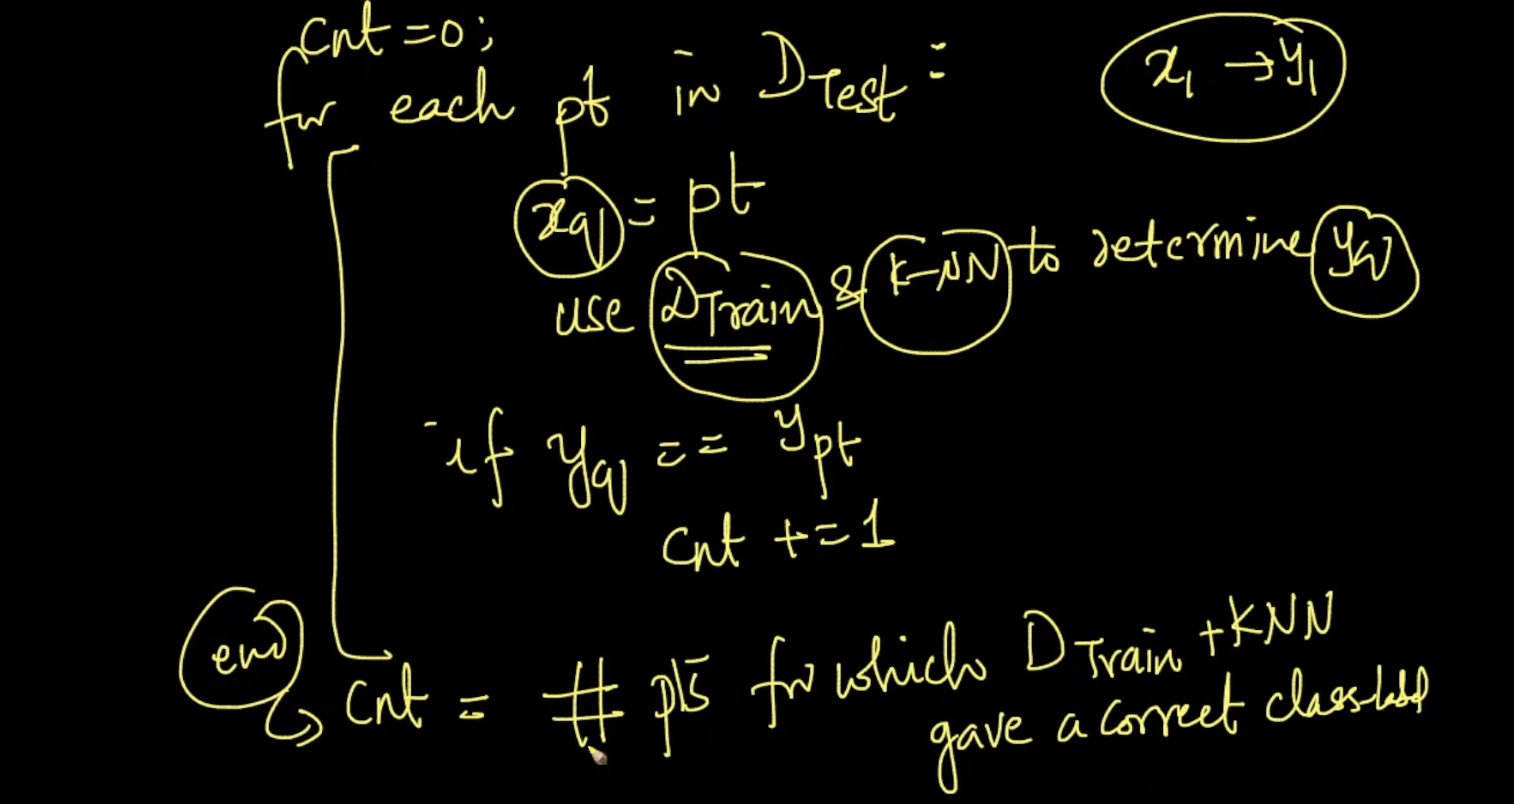 Cnt = 0;
for each pt in D Test : x₁ → y₁
xq = pt
use D Train & K-NN to determine yq
if yq == y pt
Cnt += 1
end
Cnt = # pts for which D Train + KNN
gave a correct class-label